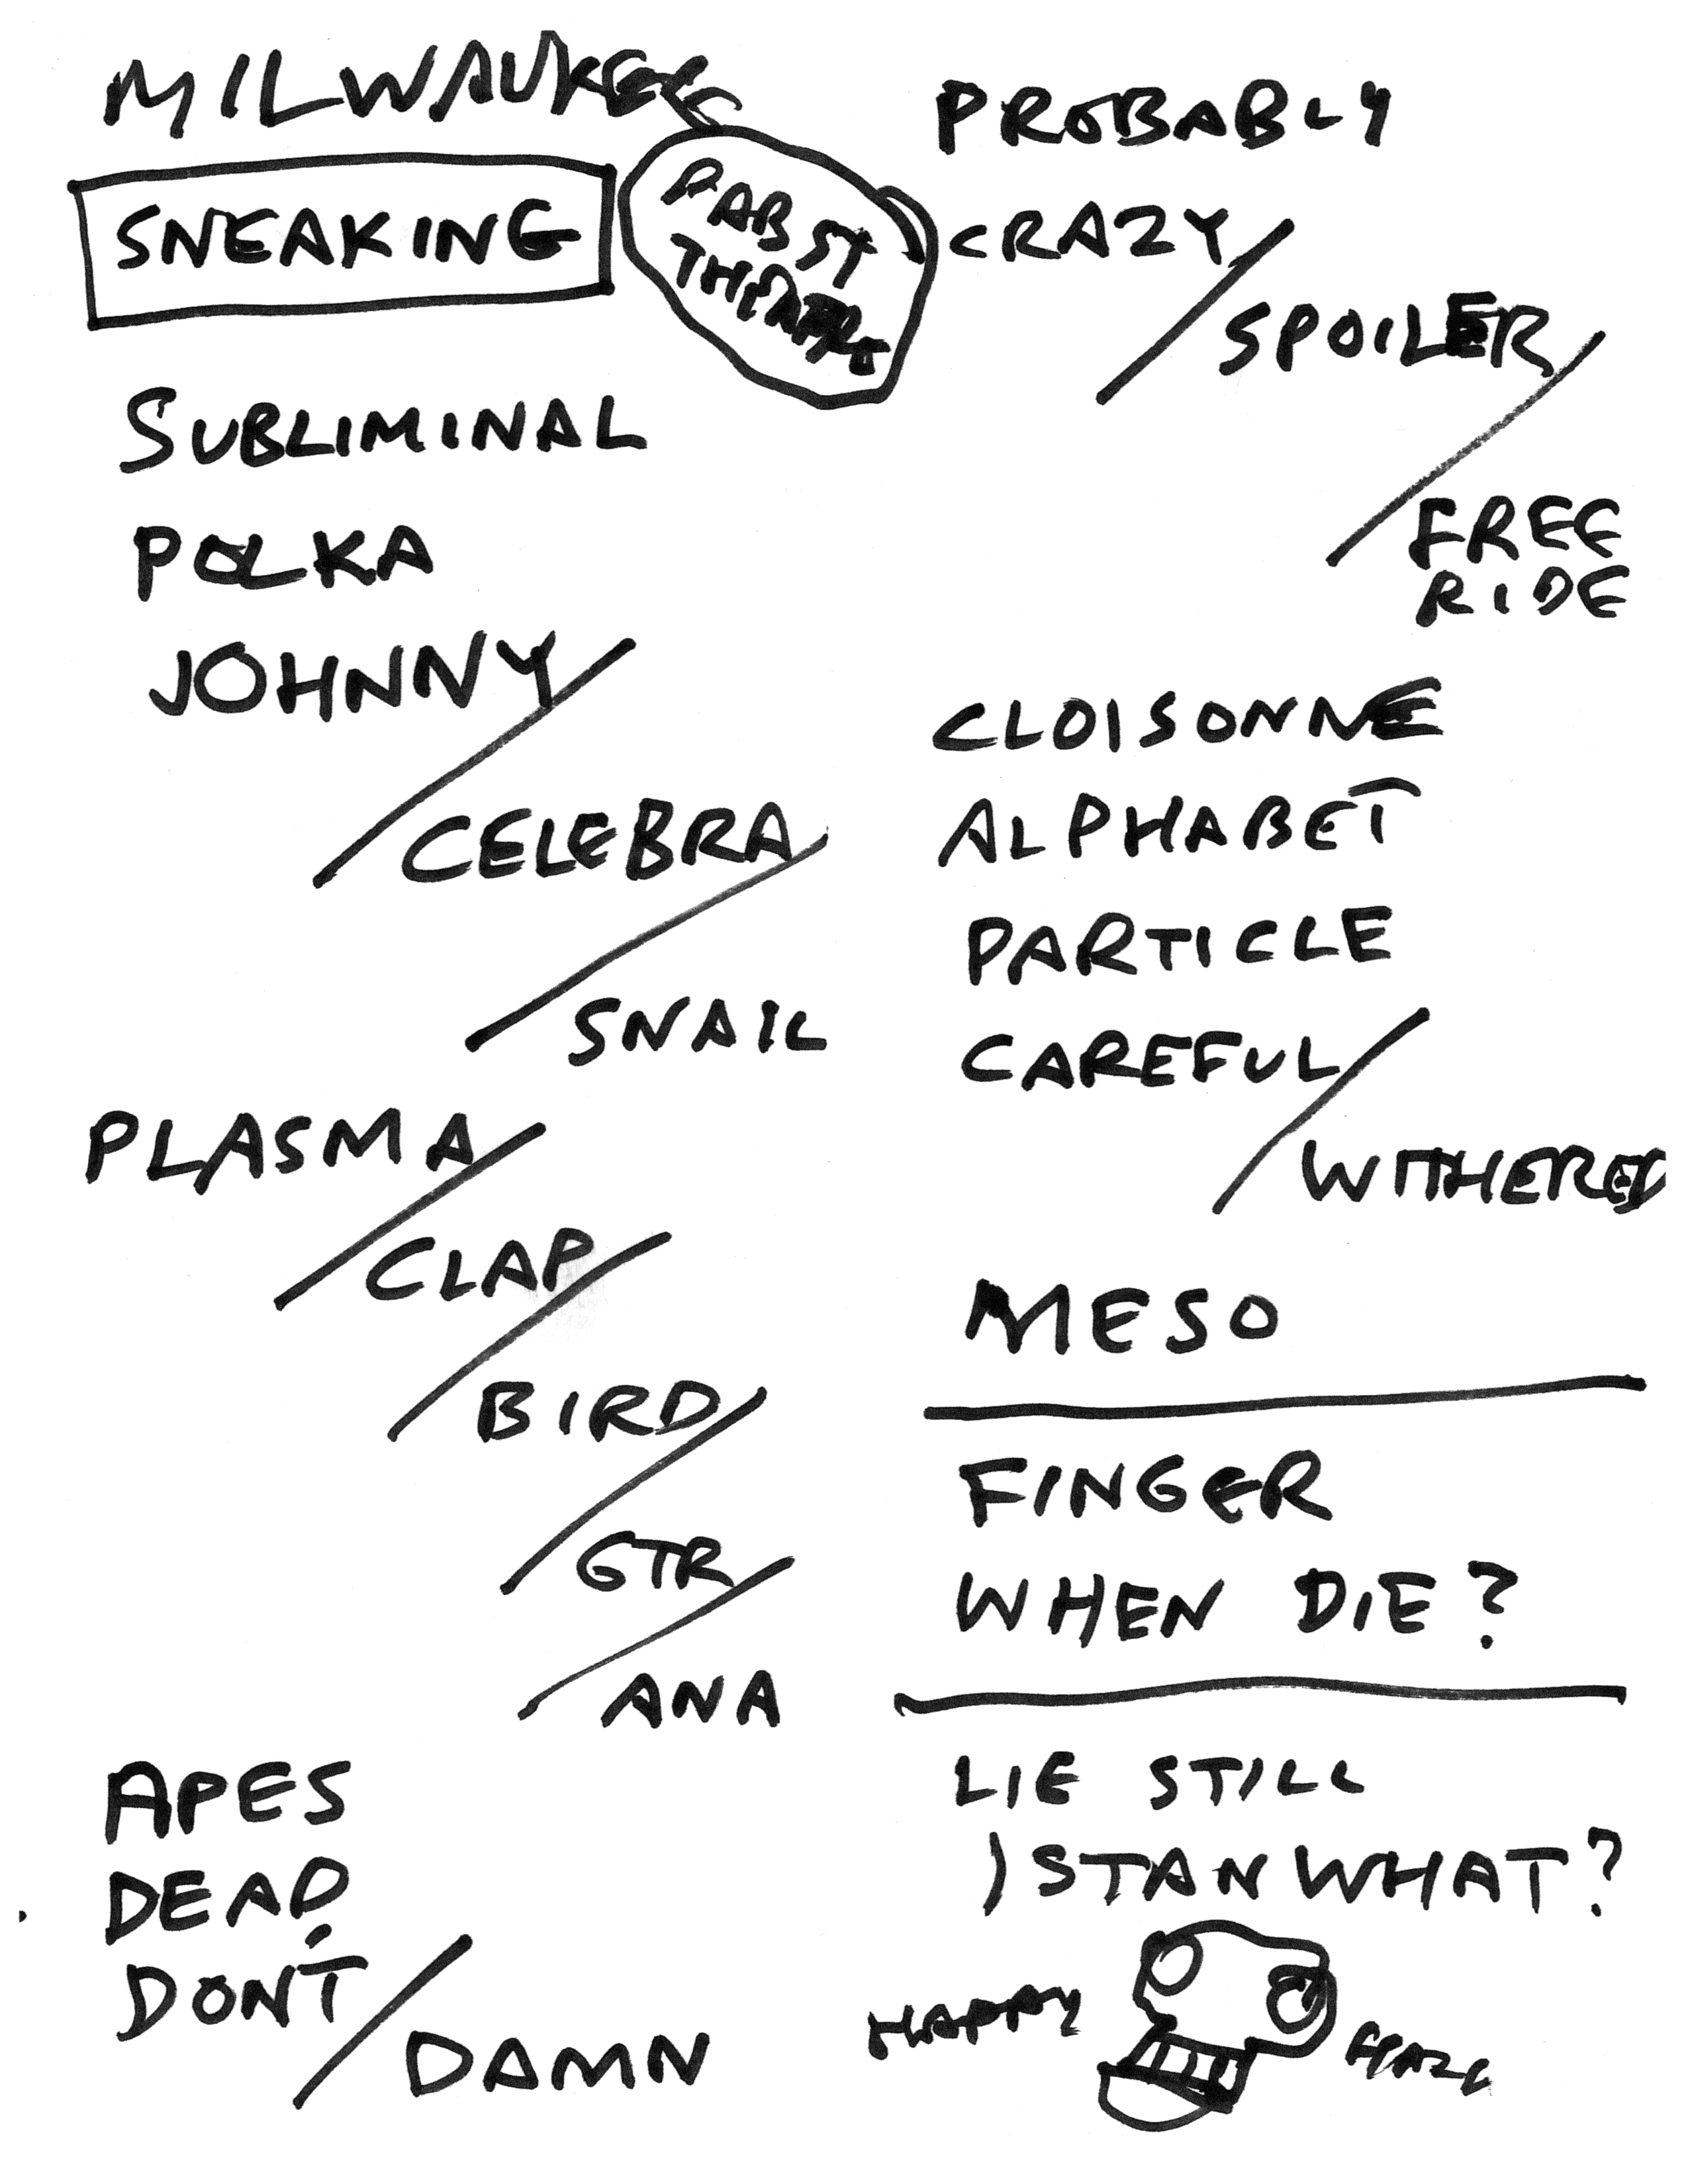 MILWAUKEE
SNEAKING
PABST
THEATRE
SUBLIMINAL
POLKA
JOHNNY/
CELEBRA/
SNAIL
PLASMA/
CLAP/
BIRD/
GTR/
ANA
APES
DEAD
DON'T/
DAMN
PROBABLY
CRAZY/
SPOILER/
FREE
RIDE
CLOISONNE
ALPHABET
PARTICLE
CAREFUL/
WITHERED
MESO
FINGER
WHEN DIE?
LIE STILL
)STANWHAT?
HAPPY